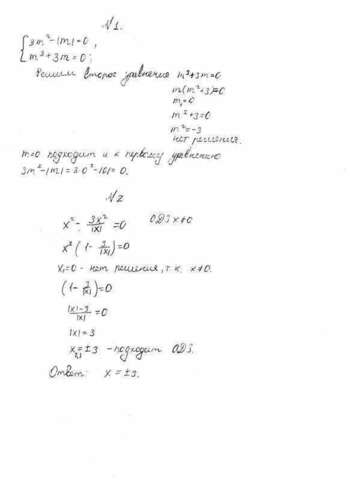 №1.
{ 3m²-|m|=0,
m³+3m=0;
Решим второе уравнение m³+3m=0
m(m²+3)=0
m₁=0
m²+3=0
m²=-3
нет решения.
m=0 подходит и к первому уравнению
3m²-|m|=3·0²-|0|=0.
№2
x² - 3x²/|x| =0 ОДЗ x≠0
x²(1- 3/|x|)=0
x₁=0 - нет решения, т.к. x≠0.
(1- 3/|x|)=0
|x|-3/|x| =0
|x|=3
x₂,₃=±3 - подходит ОДЗ.
Ответ: x=±3.